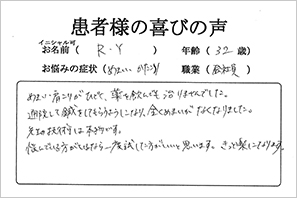 患者様の喜びの声
イニシャル可
お名前 ( R・Y ) 年齢 ( 32 歳)
お悩みの症状 (めまい かたこり) 職業 (会社員)
めまい・肩こりがひどくて、薬を飲んでも治りませんでした。
通院して鍼をしてもらうようになり、全くめまいがなくなりました。
先生の技術は本物です。
悩んでいる方がいるなら一度試した方がいいと思います。きっと楽になります。